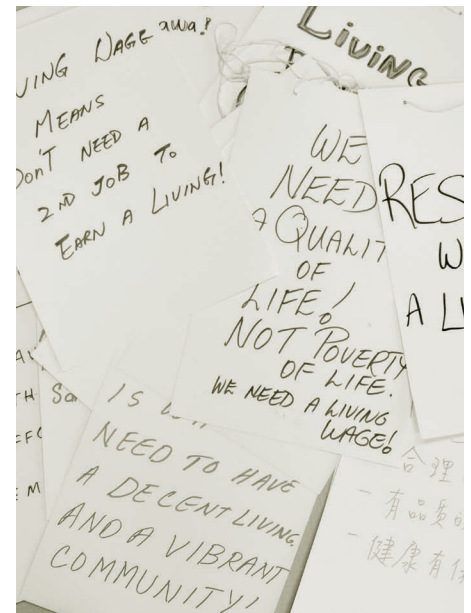 Living
LIVING WAGE
MEANS
DON'T NEED A
2ND JOB TO
EARN A LIVING!
WE
NEED
A QUALIT
OF
LIFE!
NOT POVERTY
OF LIFE.
WE NEED A LIVING
WAGE!
RES
W
A LI
IS
NEED TO HAVE
A DECENT LIVING
AND A VIBRANT
COMMUNITY!
合理
- 有品質的
- 健康有保